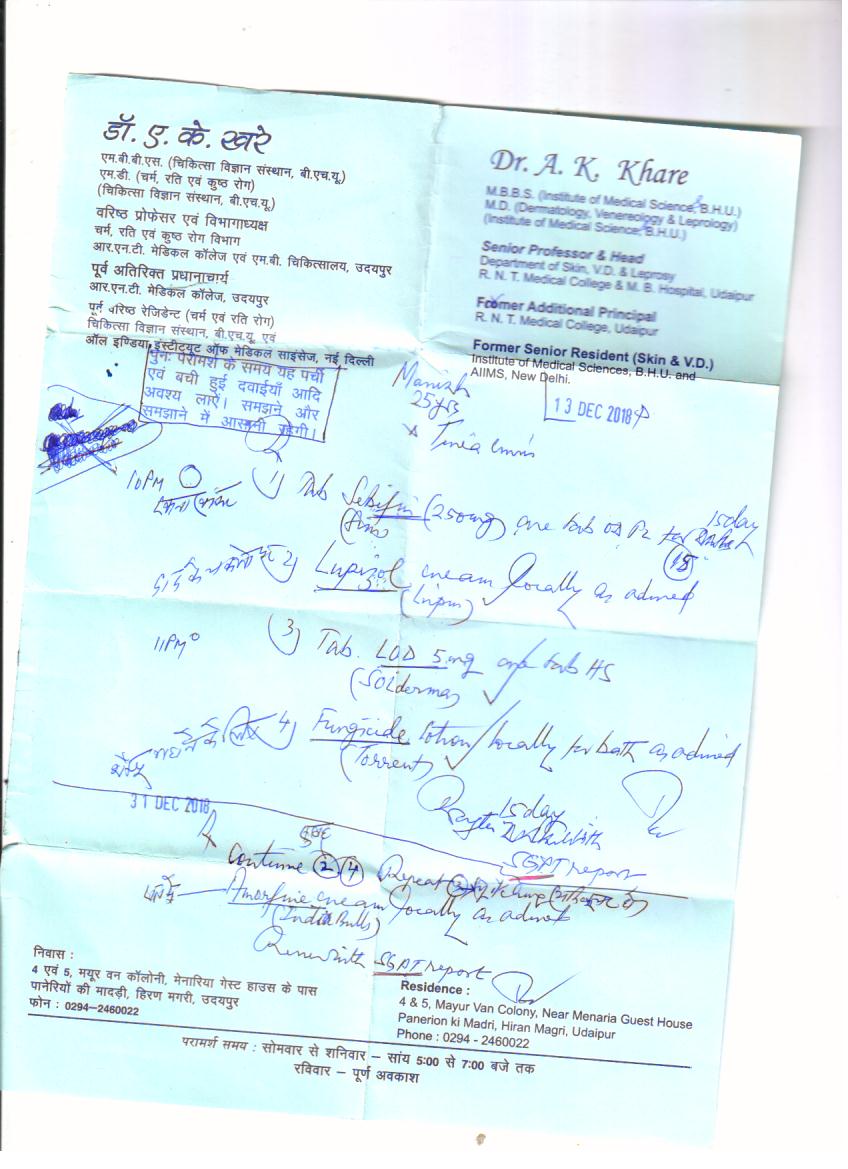 डॉ. ए. के. खरे
एम.बी.बी.एस. (चिकित्सा विज्ञान संस्थान, बी.एच.यू.)
एम.डी. (चर्म, रति एवं कुष्ठ रोग)
(चिकित्सा विज्ञान संस्थान, बी.एच.यू.)
वरिष्ठ प्रोफेसर एवं विभागाध्यक्ष
चर्म, रति एवं कुष्ठ रोग विभाग
आर.एन.टी. मेडिकल कॉलेज एवं एम.बी. चिकित्सालय, उदयपुर
पूर्व अतिरिक्त प्रधानाचार्य
आर.एन.टी. मेडिकल कॉलेज, उदयपुर
पूर्व वरिष्ठ रेजिडेन्ट (चर्म एवं रति रोग)
चिकित्सा विज्ञान संस्थान, बी.एच.यू. एवं
ऑल इण्डिया इंस्टीट्यूट ऑफ मेडिकल साइंसेज, नई दिल्ली
Dr. A. K. Khare
M.B.B.S. (Institute of Medical Science, B.H.U.)
M.D. (Dermatology, Venereology & Leprology)
(Institute of Medical Science, B.H.U.)
Senior Professor & Head
Department of Skin, V.D. & Leprosy
R. N. T. Medical College & M. B. Hospital, Udaipur
Former Additional Principal
R. N. T. Medical College, Udaipur
Former Senior Resident (Skin & V.D.)
Institute of Medical Sciences, B.H.U. and
AIIMS, New Delhi.
पुनः परामर्श के समय यह पर्ची
एवं बची हुई दवाईयाँ आदि
अवश्य लाऐं। समझने और
समझाने में आसानी रहेगी।
Manish
25yrs
13 DEC 2018
Tinea cruris
10PM 1) Tab Sebifin (250mg) one tab for 15 day
15
2) Lupizol cream locally as advised
(Lupin)
11PM 3) Tab. LOD 5mg one tab HS
(Solderma)
4) Fungicide lotion locally for bath as advised
(Torrent)
15 day
SGPT report
31 DEC 2018
Continue 2 4 Repeat 3
Amorfine cream locally as advised
(IndiaBulls)
Review with SGPT report
निवास :
4 एवं 5, मयूर वन कॉलोनी, मेनारिया गेस्ट हाउस के पास
पानेरियों की मादड़ी, हिरण मगरी, उदयपुर
फोन : 0294-2460022
Residence :
4 & 5, Mayur Van Colony, Near Menaria Guest House
Panerion ki Madri, Hiran Magri, Udaipur
Phone : 0294 - 2460022
परामर्श समय : सोमवार से शनिवार – सांय 5:00 से 7:00 बजे तक
रविवार – पूर्ण अवकाश